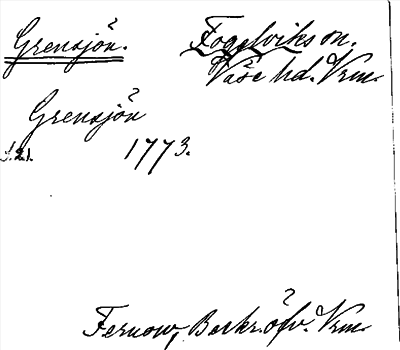 Grensjön. Fogelviks sn.
Väse hd. Vrm.
Grensjön
s. 21. 1773.
Fernow, Beskr. öfv. Vrm.